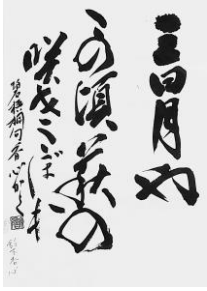 三日月や
この頃萩の
咲きこぼれ
碧梧桐句香心かく